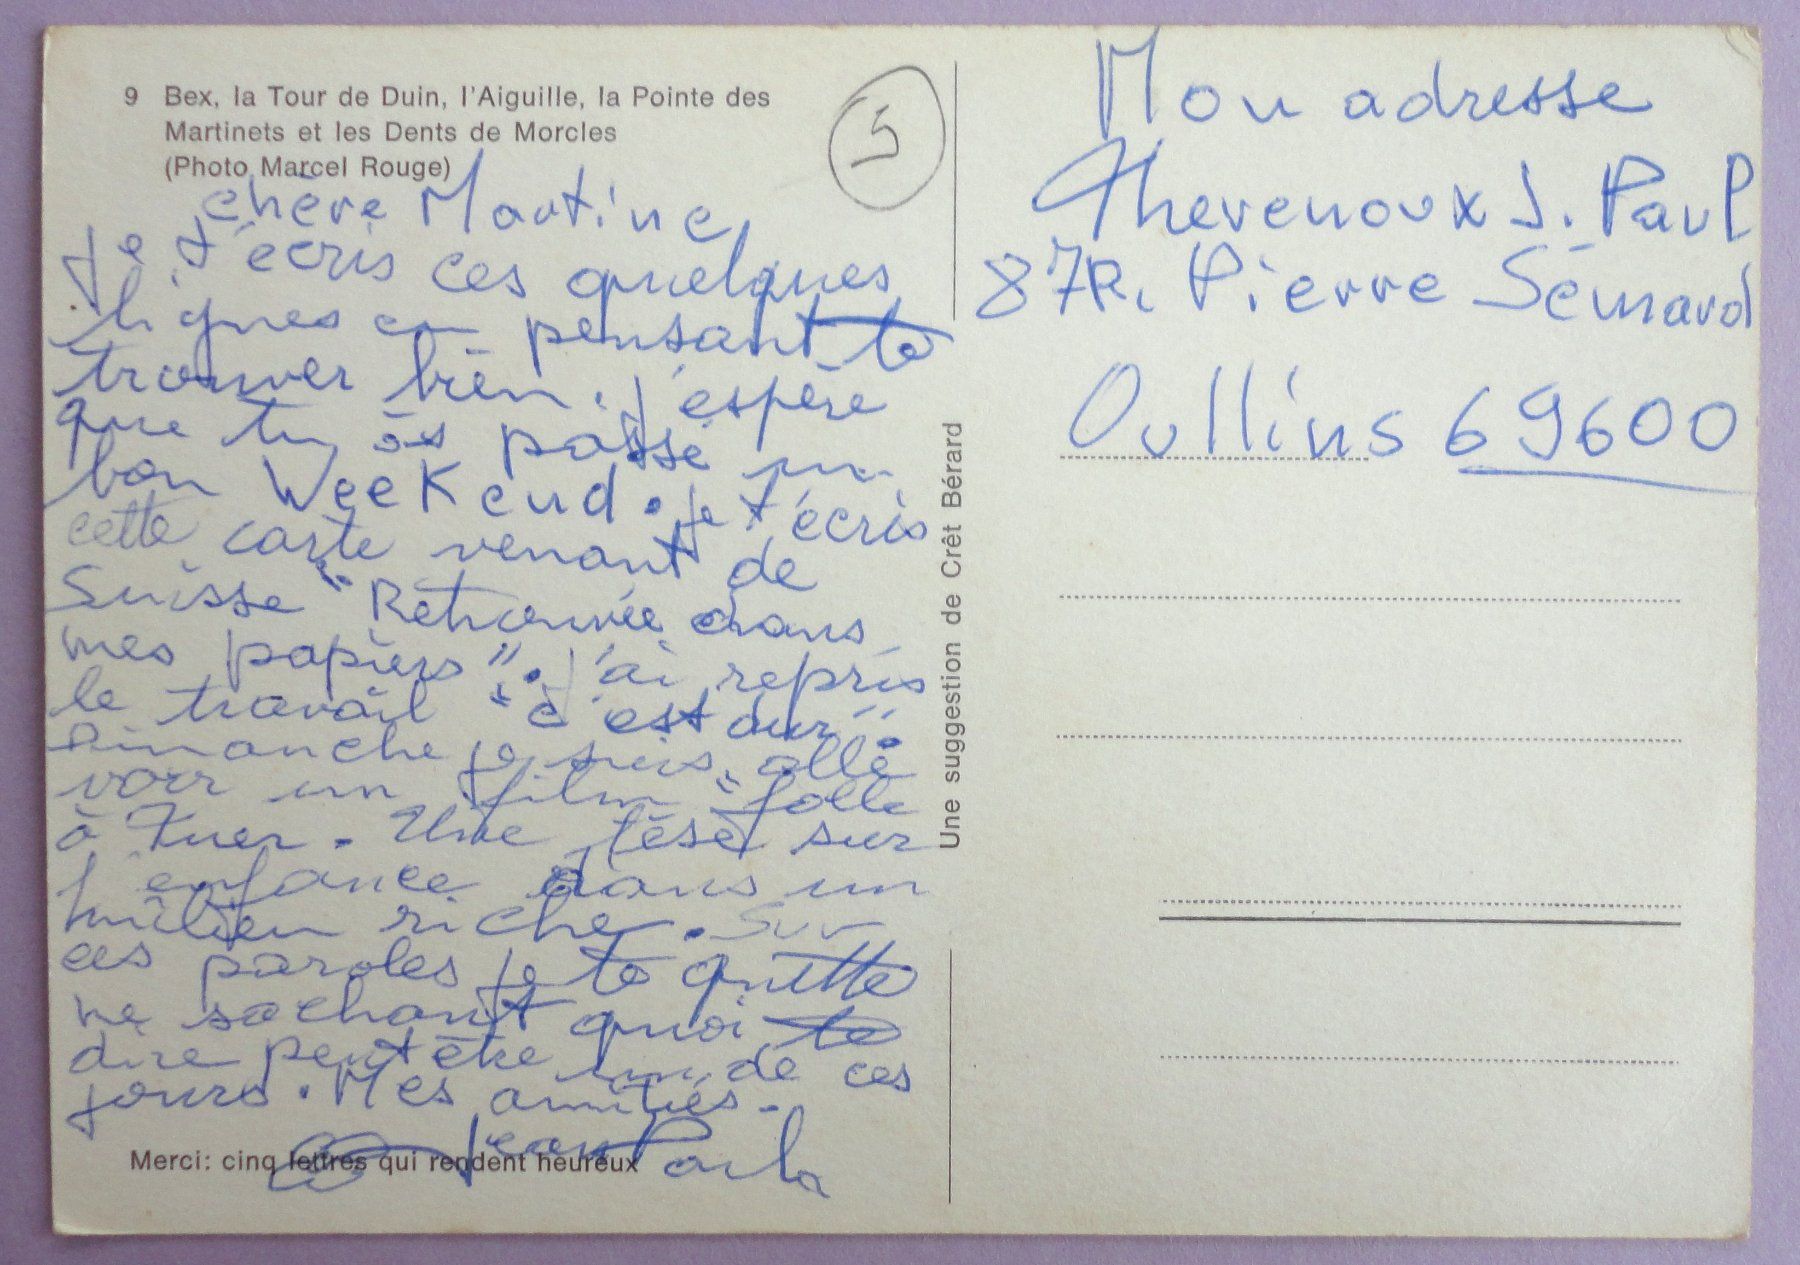 9 Bex, la Tour de Duin, l'Aiguille, la Pointe des
Martinets et les Dents de Morcles
(Photo Marcel Rouge)
5
chère Martine
Je t'écris ces quelques
lignes en pensant te
trouver bien. J'espère
que tu as passé un
bon WeeKend. je t'écris
cette carte venant de
Suisse "Retrouvée dans
mes papiers". J'ai repris
le travail "c'est dur".
Dimanche je suis allé
voir un film "folle
à Tuer. Une tèse sur
l'enfance dans un
milieu riche. Sur
ces paroles je te quitte
ne sachant quoi te
dire peut être un de ces
jours. Mes amitiés.
Jean Paul
Merci: cinq lettres qui rendent heureux
Une suggestion de Crêt Bérard
Mon adresse
Thevenoux J. Paul
87 R. Pierre Sémard
Oullins 69600